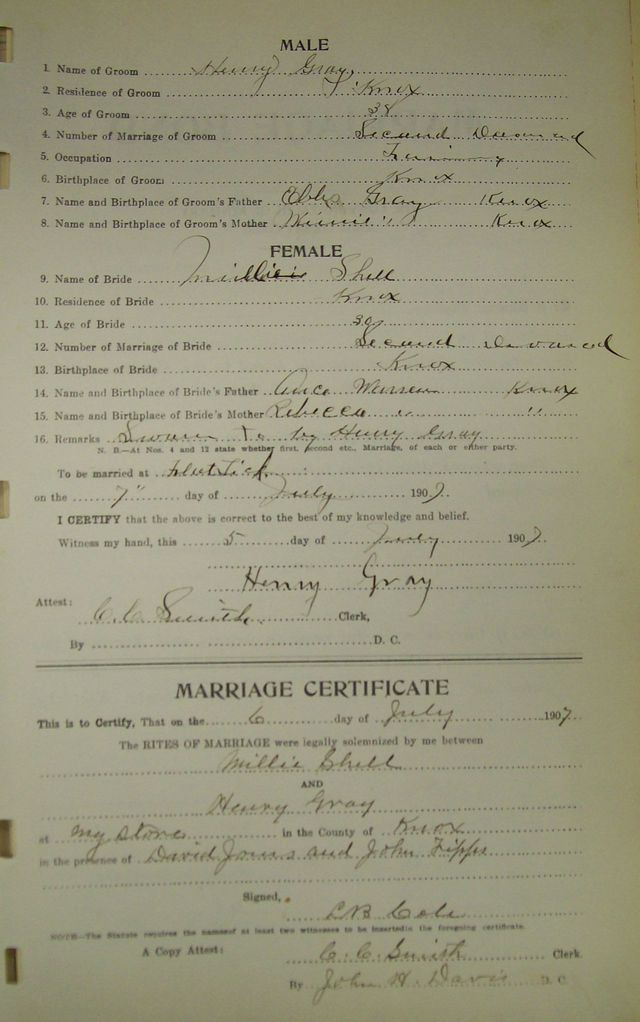 MALE
1. Name of Groom Henry Gray
2. Residence of Groom Knox
3. Age of Groom 38
4. Number of Marriage of Groom Second Divorced
5. Occupation
6. Birthplace of Groom Knox
7. Name and Birthplace of Groom's Father Gray Knox
8. Name and Birthplace of Groom's Mother Minnie " Knox
FEMALE
9. Name of Bride Millie Shell
10. Residence of Bride Knox
11. Age of Bride
12. Number of Marriage of Bride Second Divorced
13. Birthplace of Bride Knox
14. Name and Birthplace of Bride's Father Knox
15. Name and Birthplace of Bride's Mother Rebecca " "
16. Remarks Sworn to by Henry Gray
N. B.—At Nos. 4 and 12 state whether first, second etc., Marriage, of each or either party.
To be married at Flat Lick
on the 7" day of July 1907.
I CERTIFY that the above is correct to the best of my knowledge and belief.
Witness my hand, this 5 day of July 1907
Henry Gray
Attest:
C. C. Smith Clerk,
By D. C.
MARRIAGE CERTIFICATE
This is to Certify, That on the 6 day of July 1907
The RITES OF MARRIAGE were legally solemnized by me between
Millie Shell
AND
Henry Gray
at my store in the County of Knox
in the presnce of David Jones and John Fipps
Signed,
Cole
NOTE—The Statute requires the names of at least two witnesses to be inserted in the foregoing certificate.
A Copy Attest: C. C. Smith Clerk.
By John H. Davis D. C.